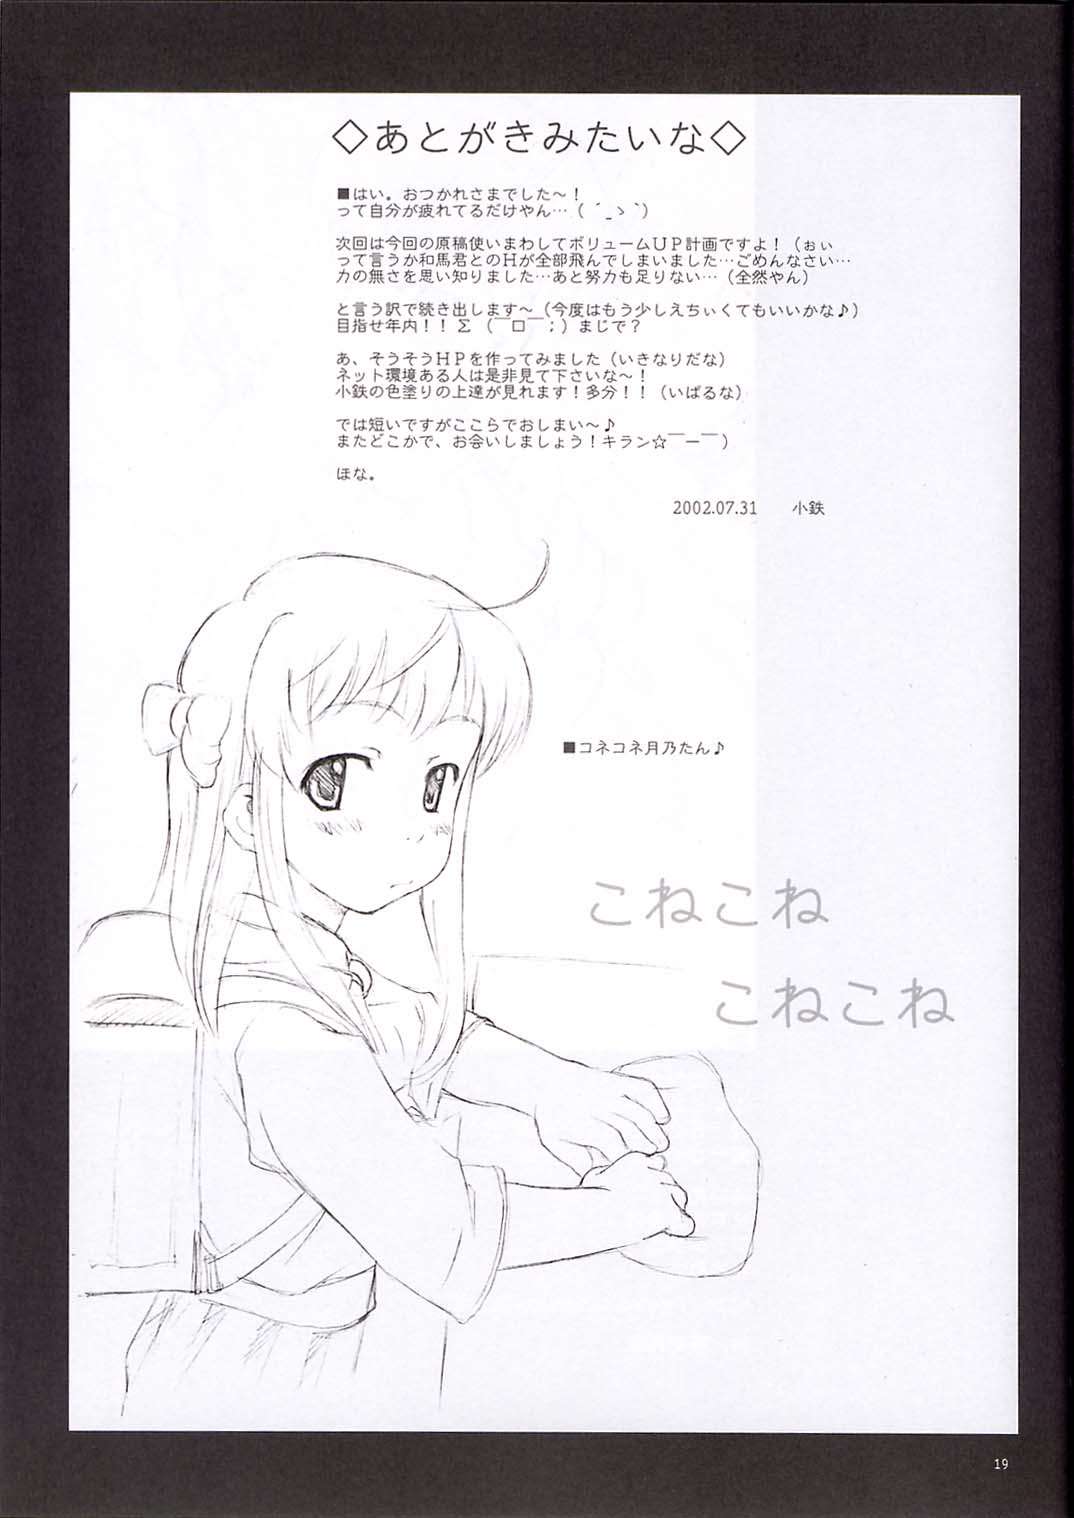 ◇あとがきみたいな◇
■はい。おつかれさまでした～！
って自分が疲れてるだけやん…（ ´_ゝ`）
次回は今回の原稿使いまわしてボリュームＵＰ計画ですよ！（ぉぃ
って言うか和馬君とのＨが全部飛んでしまいました…ごめんなさい…
力の無さを思い知りました…あと努力も足りない…（全然やん）
と言う訳で続き出します～（今度はもう少しえちぃくてもいいかな♪）
目指せ年内！！Σ（￣ロ￣；）まじで？
あ、そうそうＨＰを作ってみました（いきなりだな）
ネット環境ある人は是非見て下さいな～！
小鉄の色塗りの上達が見れます！多分！！（いばるな）
では短いですがここらでおしまい～♪
またどこかで、お会いしましょう！キラン☆￣ー￣）
ほな。
2002.07.31　小鉄
■コネコネ月乃たん♪
こねこね
こねこね
19